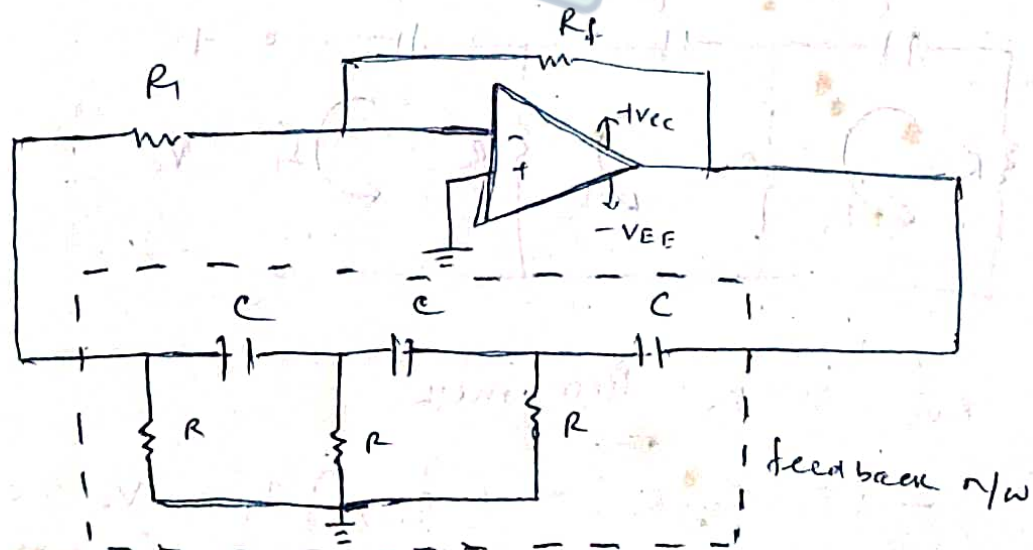 Rf
R1
+Vcc
-
+
-VEE
C C C
R R R
feedback n/w